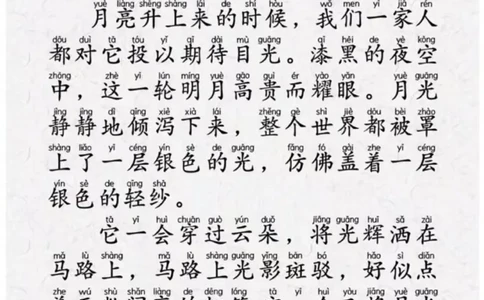 yuè liàng shēng shàng lái de shí hòu wǒ men yì jiā rén
月亮升上来的时候，我们一家人
dōu duì tā tóu yǐ qī dài mù guāng qī hēi de yè kōng
都对它投以期待目光。漆黑的夜空
zhōng zhè yì lún míng yuè gāo guì ér yào yǎn yuè guāng
中，这一轮明月高贵而耀眼。月光
jìng jìng de qīng xiè xià lái zhěng gè shì jiè dōu bèi zhào
静静地倾泻下来，整个世界都被罩
shàng liǎo yì céng yín sè de guāng fǎng fó gài zhe yì céng
上了一层银色的光，仿佛盖着一层
yín sè de qīng shā
银色的轻纱。
tā yí huì chuān guò yún duǒ jiāng guāng huī sǎ zài
它一会穿过云朵，将光辉洒在
mǎ lù shàng mǎ lù shàng guāng yǐng bān bó hǎo sì diǎn
马路上，马路上光影斑驳，好似点